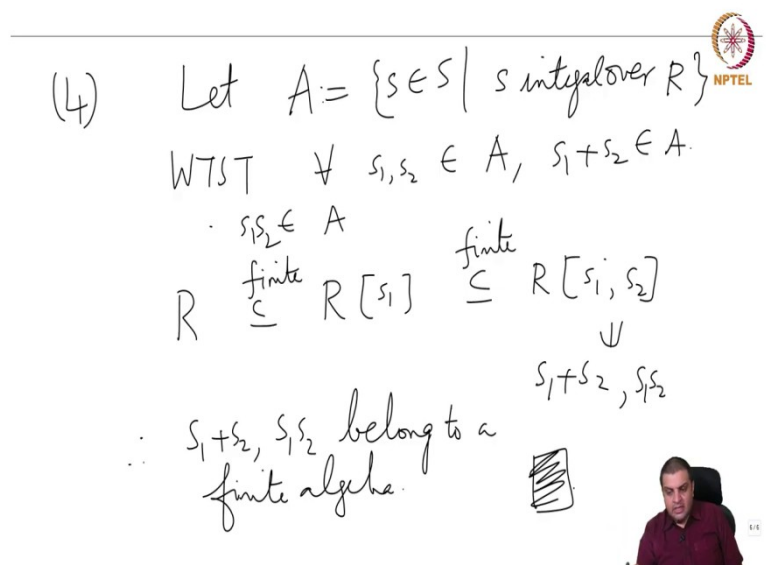 NPTEL
(4) Let A := {s ∈ S | s integral over R}
WTST ∀ s₁, s₂ ∈ A, s₁ + s₂ ∈ A.
s₁s₂ ∈ A
finite finite
R ⊆ R[s₁] ⊆ R[s₁, s₂]
s₁ + s₂, s₁s₂
∴ s₁ + s₂, s₁s₂ belong to a
finite algebra.